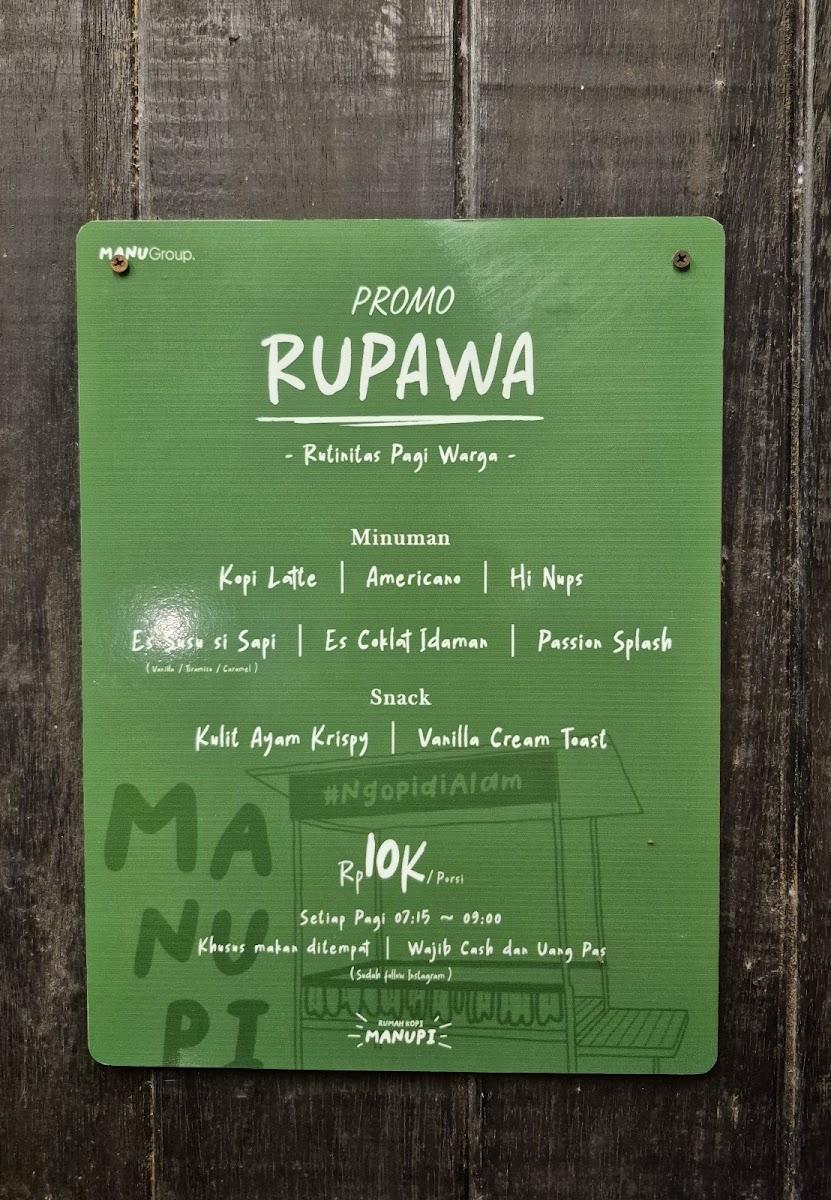 MANUGroup.
PROMO
RUPAWA
- Rutinitas Pagi Warga -
Minuman
Kopi Latte | Americano | Hi Nups
Es Susu si Sapi | Es Coklat Idaman | Passion Splash
(Vanilla / Tiramisu / Caramel)
Snack
Kulit Ayam Krispy | Vanilla Cream Toast
#NgopidiAlam
MA
NU
PI
Rp10K/Porsi
Setiap Pagi 07:15 ~ 09:00
Khusus makan ditempat | Wajib Cash dan Uang Pas
(Sudah follow Instagram)
RUMAH KOPI
MANUPI